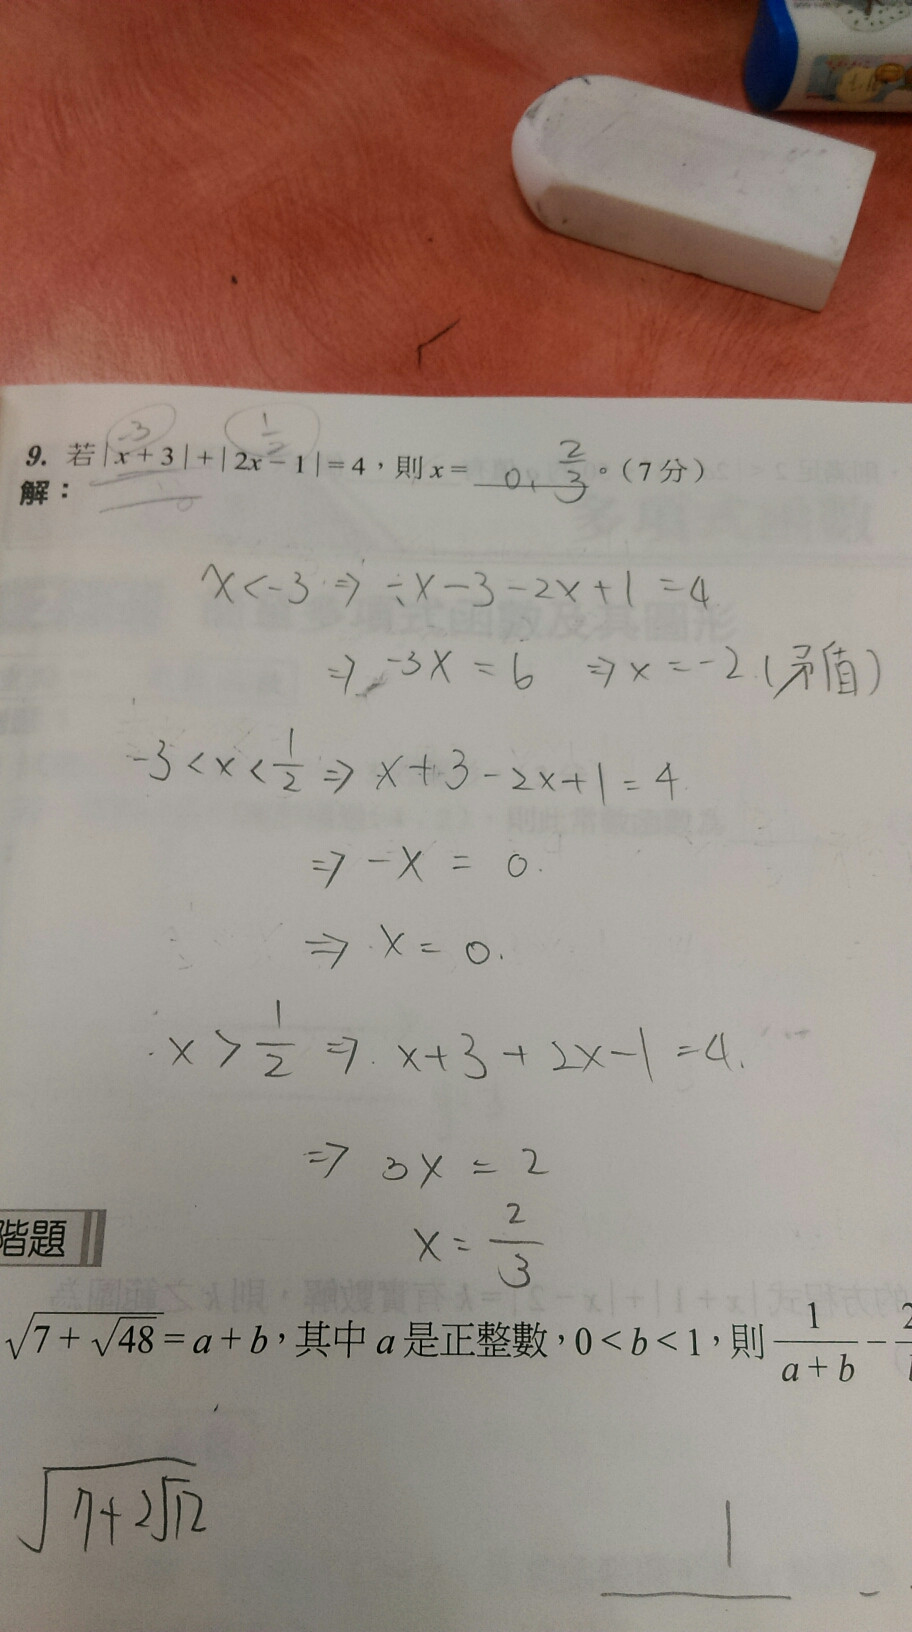 -3 1/2
9. 若|x+3|+|2x-1|=4,則x= 0, 2/3 。(7分)
解:
x<-3 ⇒ -x-3-2x+1=4
⇒ -3x=6 ⇒ x=-2 (矛值)
-3<x<1/2 ⇒ x+3-2x+1=4
⇒ -x = 0.
⇒ x=0.
x>1/2 ⇒ x+3+2x-1=4.
⇒ 3x=2
x=2/3
階題
√(7+√48)=a+b,其中a是正整數,0<b<1,則 1/(a+b) - 2
√(7+2√12)
1